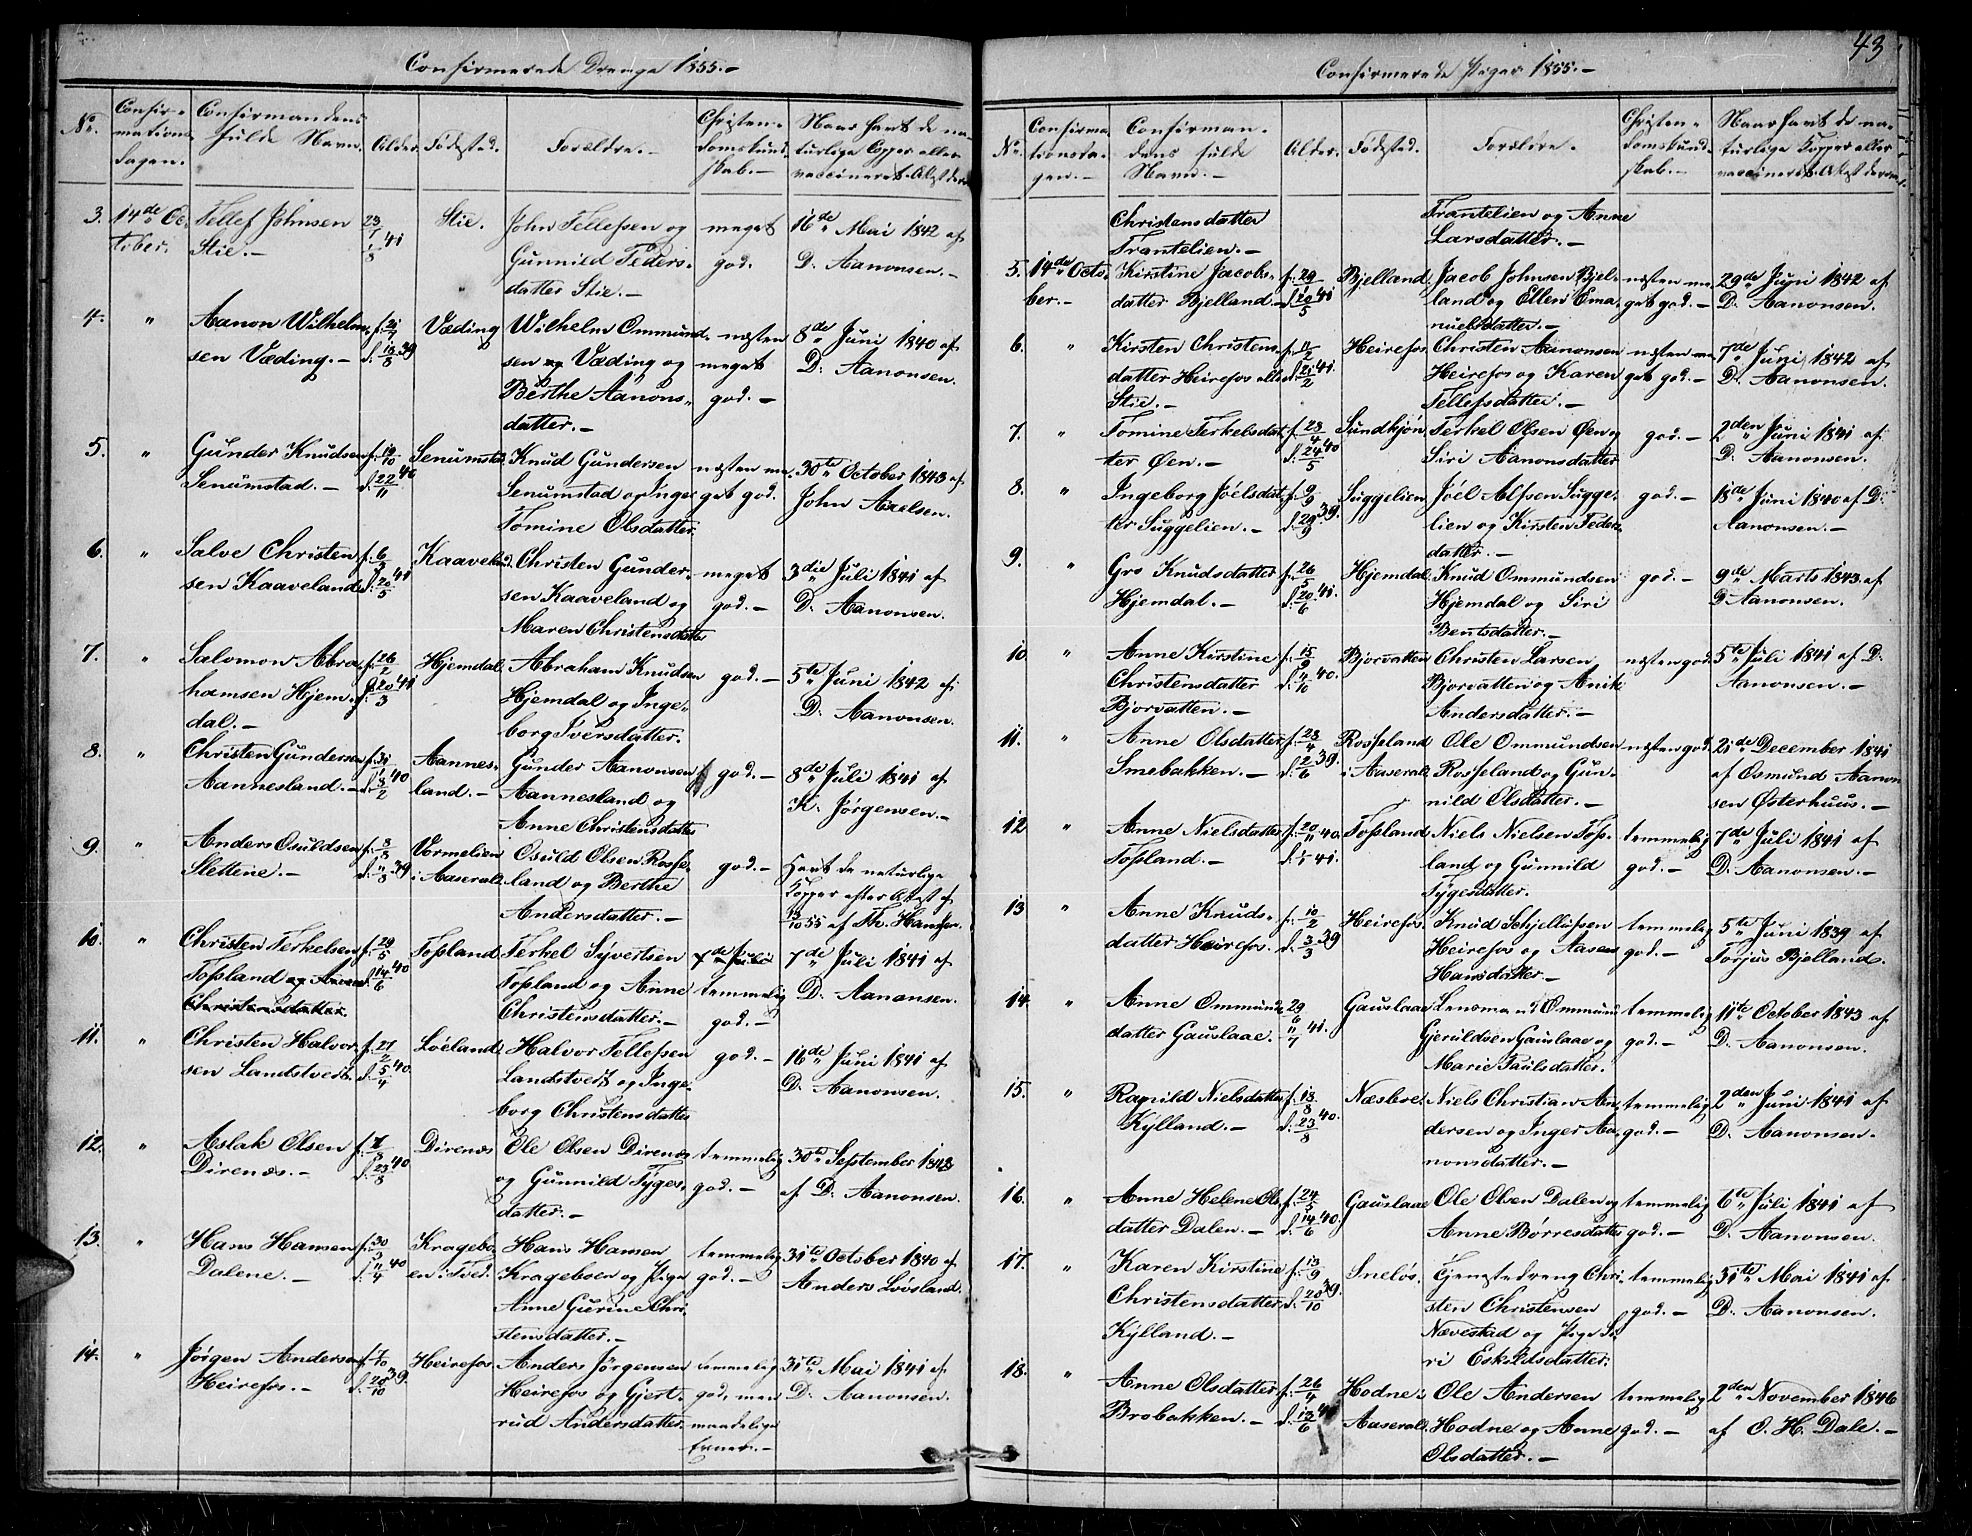 43
Confirmerede Drenge 1855.-
No.
Confir-
mations
dagen.
Confirmandens
fulde Navn.
Alder.
Fødested.
Forældre.-
Christen-
domskund-
skab.-
Naar havt de na-
turlige Kopper eller
vaccineret. Attest derom
3.
14de Oc-
tober.
Tellef Johnsen
Stie.-
23/7
1/8 41
Stie.
John Tellefsen og
Gunnild Peders-
datter Stie.-
meget
god.
16de Mai 1842 af
D. Aanonsen.-
4.
"
Aanon Wilhelm-
sen Væding.-
f. 21/7
d. 18/8 39
Væding
Wilhelm Ommund-
sen og Væding og
Berthe Aanons-
datter.-
næsten
meget
god.-
8de Juni 1840 af
D. Aanonsen.
5.
"
Gunder Knudsen
Senumstad.-
f. 19/10
d. 22/11 40
Senumstad
Knud Gundersen
Senumstad og Inger
Tomine Olsdatter
næsten me-
get god.
30te October 1843 af
John Axelsen.
6.
"
Salve Christen
sen Kaaveland
f. 6/3
d. 20/5 41
Kaaveland
Christen Gunder-
sen Kaaveland og
Maren Christensdatter
meget
god.-
3die Juli 1841 af
D. Aanonsen.
7.
"
Salomon Abra
hamsen Hjem-
dal.-
f. 26/2
d. 20/3 41
Hjemdal
Abraham Knudsen
Hjemdal og Inge-
borg Iversdatter.
god.-
5te Juni 1842 af
D. Aanonsen.
8.
"
Christen Gundersen
Aannesland.-
f. 31/1
d. 8/2 40
Aannes-
land.-
Gunder Aanonsen
Aannesland og
Anne Christensdatter
god.-
8de Juli 1841 af
K. Jörgensen.-
9.
"
Anders Osuldsen
Slettene.-
f. 3/8
d. "/8 39
Vormelien
i Aaserald
Osuld Olsen Rosse-
land og Berthe
Andersdatter.-
god.-
Havt de naturlige
Kopper efter Attest af
13/10 55 af Th. Hansson.
10.
"
Christen Terkelsen
Tofsland og Anne
Christensdatter.
f. 29/5
d. 14/6 40
Tofsland
Terkel Syvertsen
Tofsland og Anne
Christensdatter.-
7de Juli
temmelig
god.-
7de Juli 1841 af
D. Aanonsen.
11.
"
Christen Halvor-
sen Landstvert.
f. 27/2
d. 5/4 40
Loeland
Halvor Tellefsen
Landstvert og Inge
borg Christensdatter
god.-
16de Juni 1841 af
D. Aanonsen.
12.
"
Aslak Olsen
Direnæs.-
f. 7/8
d. 23/8 40
Direnæs
Ole Olsen Direnæs
og Gunnild Tyges-
datter.-
temmelig
god.-
30te September 1842
af D. Aanonsen.
13.
"
Hans Hansen
Dalene.-
f. 30/3
d. "/4 40
Kragebo
en i Tved.
Hans Hansen
Krageboen og Pige
Anne Gurine Chri-
stensdatter.-
temmelig
god.-
31te October 1840 af
Anders Lövsland.
14.
"
Jörgen Andersen
Heirefos.-
f. 7/10
d. 20/10 39.
Heirefos
Anders Jörgensen
Heirefos og Gjert-
rud Andersdatter.
temmelig
god, men
maadelige
Evner.-
31te Mai 1841 af
D. Aanonsen.
Confirmerede Piger 1855.-
No.
Confirma
tionsda-
gen.-
Confirman-
dens fulde
Navn.-
Alder.
Fødested.
Forældre.-
Christen-
domskund-
skab.-
Naar havt de na-
turlige Kopper eller
vaccineret. Attest derom.
Christensdatter
Trantelien.-
Trantelien og Anne
Larsdatter.-
5.
14de Octo-
ber.-
Kirstine Jacobs-
datter Bjelland.-
f. 29/"
d. 20/5 41
Bjelland
Jacob Johnsen Bjel-
land og Ellen Ema
nuelsdatter.-
næsten me-
get god.-
29de Juni 1842 af
D. Aanonsen.
6.
"
Kirsten Christens-
datter Heirefos eller
Stie.-
f. 11/2
d. 21/2 41.
Heirefos
Christen Aanonsen
Heirefos og Karen
Tellefsdatter.-
næsten me-
get god.-
7de Juni 1842 af
D. Aanonsen.
7.
"
Tomine Terkelsdat-
ter Øen.-
f. 23/4
d. 24/5 40
Sundkjön
Terkel Olsen Øen og
Siri Aanonsdatter
god.-
2den Juni 1841 af
D. Aanonsen.
8.
"
Ingeborg Joëlsdat-
ter Suggelien.-
f. 9/9
d. 29/9 39.
Suggelien
Joël Alfsen Sugge-
lien og Kirsten Peders-
datter.-
god.-
18de Juni 1840 af D.
Aanonsen.-
9.
"
Gro Knudsdatter
Hjemdal.-
f. 26/5
d. 20/6 41.
Hjemdal
Knud Ommundsen
Hjemdal og Siri
Bentsdatter.-
god.-
9de Marts 1843 af
D. Aanonsen.
10.
"
Anne Kirstine
Christensdatter
Bjorvatten.-
f. 15/9
d. 4/10 40.
Bjorvatten
Christen Larsen
Bjorvatten og Anik-
Andersdatter.-
næsten god.
5te Juli 1841 af D.
Aanonsen.-
11.
"
Anne Olsdatter
Smebakken.-
f. 23/4
d. 2/6 39.
Rosseland
i Aaserald
Ole Ommundsen
Rosseland og Gun-
nild Olsdatter.-
næsten god.
21de December 1841
af Osmund Aanon
sen Østerhuus.-
12
"
Anne Nielsdatter
Tofsland.-
f. 20/11 40.
d. 1/5 41.
Tofsland
Niels Nielsen Tofs-
land og Gunnild
Tygesdatter.
temmelig
god.-
7de Juli 1841 af
D. Aanonsen.-
13
"
Anne Knuds-
datter Heirefos.-
f. 10/2
d. 3/3 39
Heirefos
Knud Schjellufsen
Heirefos og Aasen
Hansdatter.-
temmelig
god.-
5te Juni 1839 af
Torjus Bjelland.
14.
"
Anne Ommunds-
datter Gauslaae.-
29/6
"/7 41.
Gauslaae
Lensmand Ommund
Gjeruldsen Gauslaae og
Marie Paulsdatter.
temmelig
god.-
11te October 1843 af
D. Aanonsen.
15.
"
Ragnild Nielsdatter
Kylland.-
f. 18/8
d. 23/8 40.
Næsbøe.
Niels Christian An-
dersen og Inger Aa-
nonsdatter.-
temmelig
god.-
2den Juni 1841 af
D. Aanonsen.
16.
"
Anne Helene Ols-
datter Dalen.-
f. 24/5
d. 14/6 40.
Gauslaae
Ole Olsen Dalen og
Anne Børresdatter
temmelig
god.-
6te Juli 1841 af
D. Aanonsen.
17.
"
Karen Kirstine
Christensdatter
Kylland.-
f. 13/9
d. 20/10 39.
Sneløs.
Tjenestedreng Chri-
sten Christensen
Nævestad og Pige Si-
ri Eskildsdatter.
temmelig
god.-
31te Mai 1841 af
D. Aanonsen.
18.
"
Anne Olsdatter
Brobakken.-
f. 26/4
d. 13/6
Hodne i
Aaserald
Ole Andersen
Hodne og Anne
Olsdatter.-
temmelig
god.-
2den November 1846
af O. H. Dale.-